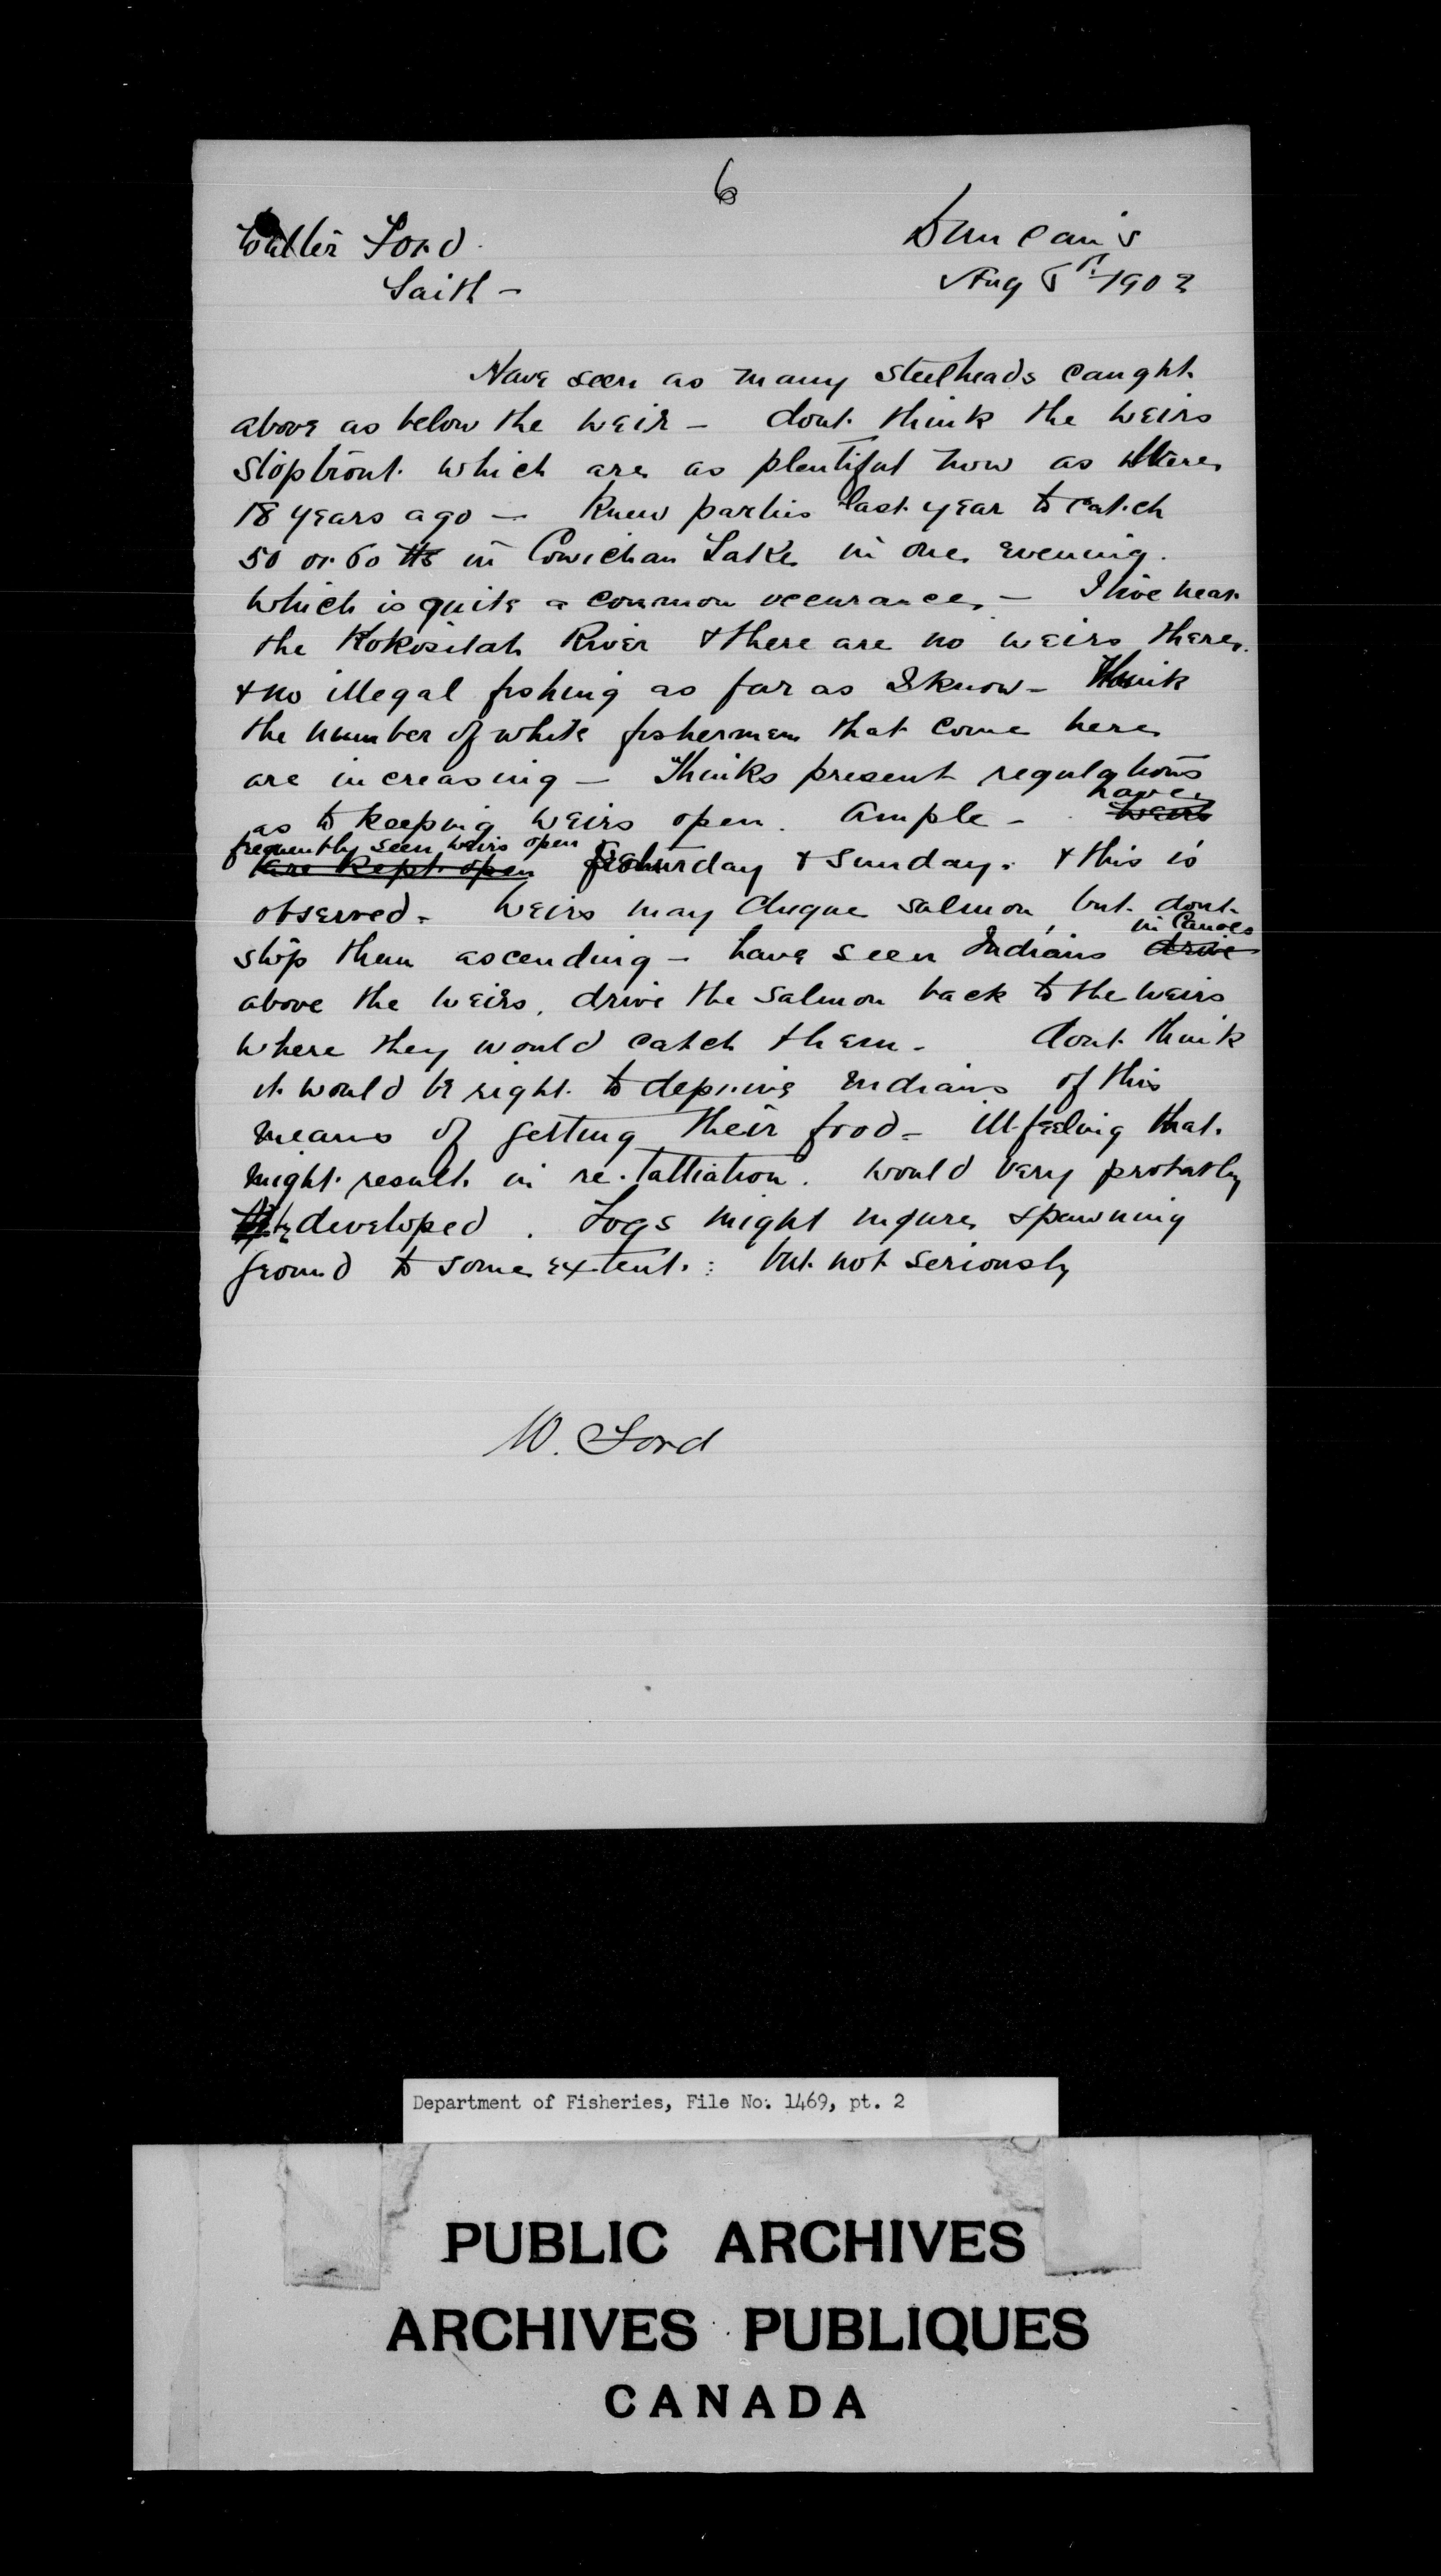 6
Walter Ford.
Duncan's
Saith -
Aug 5th 1902
Have seen as many steelheads caught
above as below the weir - dont think the weirs
stop trout which are as plentiful now as there
18 years ago - Knew parties last year to catch
50 or 60 lbs in Cowichan Lake in one evening.
which is quite a common occurance, - I live near
the Kokosilah River & there are no weirs there.
& no illegal fishing as far as I know - Think
the number of white fishermen that come here
are increasing - Thinks present regulations
as to keeping weirs open. Ample - have weirs
frequently seen weirs open
are kept open Saturday & Sunday. & this is
observed - Weirs may cheque salmon, but dont
in Canoes
stop them ascending - have seen Indians drive
above the weirs, drive the salmon back to the weirs
where they would catch them - dont think
it would be right to deprive Indians of this
means of getting their food - ill feeling that
might result in re.taltiation. would very probably
be developed. Logs might injure spawning
ground to some extent: but not seriously
W. Ford
Department of Fisheries, File No. 1469, pt. 2
PUBLIC ARCHIVES
ARCHIVES PUBLIQUES
CANADA